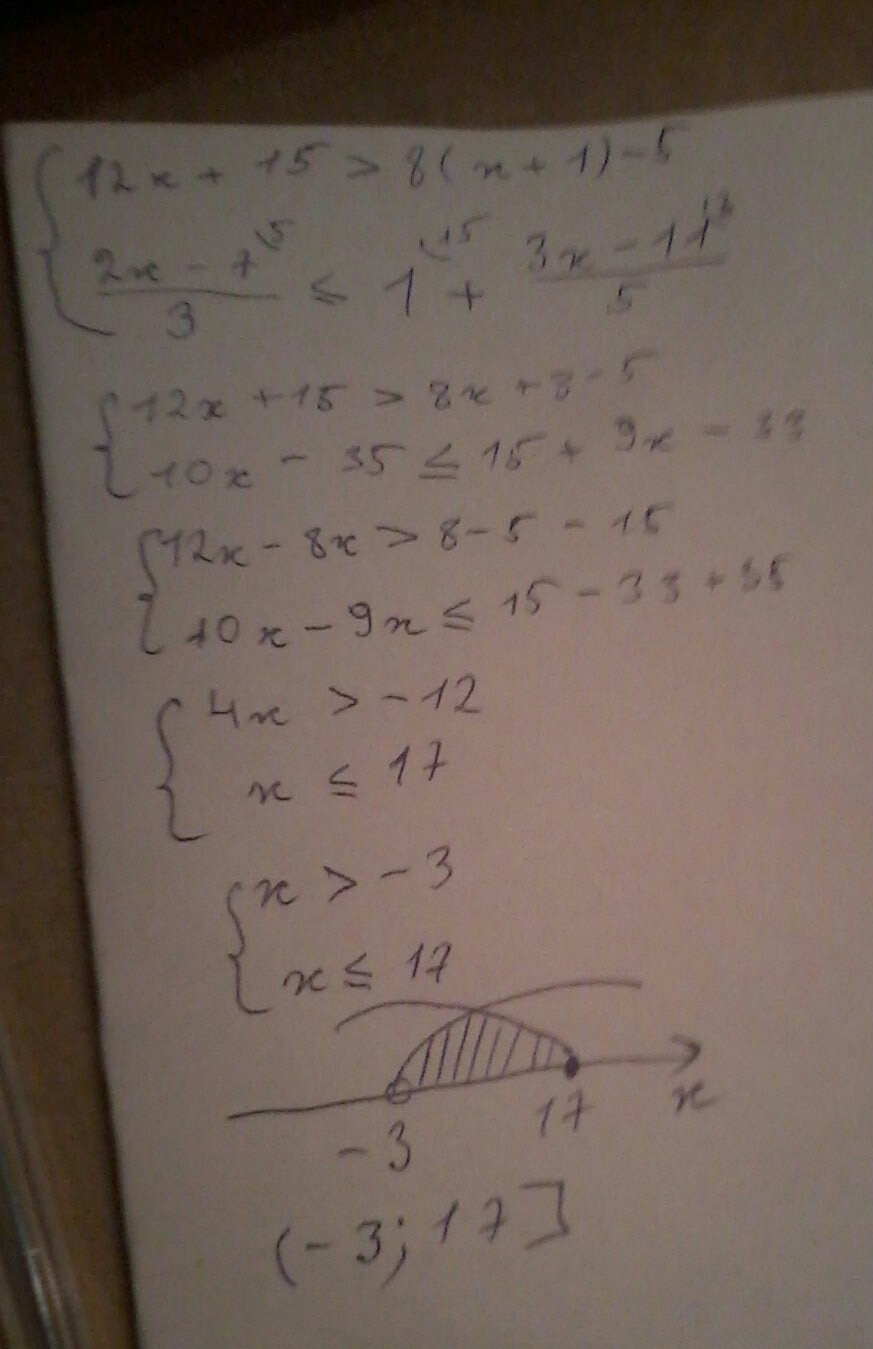 12x + 15 > 8(x + 1) - 5
(2x - 7)/3 \5 ≤ 1 \15 + (3x - 11)/5 \3
12x + 15 > 8x + 8 - 5
10x - 35 ≤ 15 + 9x - 33
12x - 8x > 8 - 5 - 15
10x - 9x ≤ 15 - 33 + 35
4x > -12
x ≤ 17
x > -3
x ≤ 17
-3 17 x
(-3; 17]